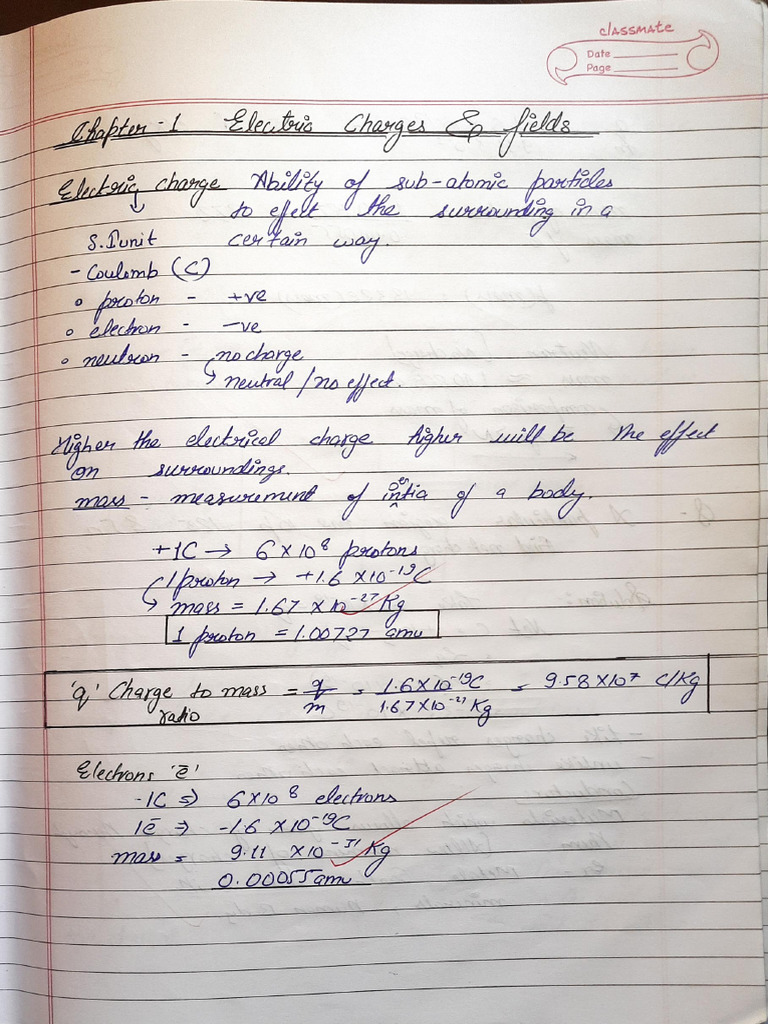 classmate
Date
Page
Chapter-1 Electric Charges & fields
Electric charge Ability of sub-atomic particles
to effect the surrounding in a
S.I unit certain way.
- Coulomb (C)
o proton - +ve
o electron - -ve
o neutron - no charge
↳ neutral / no effect.
Higher the electrical charge higher will be the effect
on surroundings.
mass - measurement of in^er^tia of a body.
+1C → 6 × 10⁸ protons
1 proton → +1.6 × 10⁻¹⁹C
↳ mass = 1.67 × 10⁻²⁷ Kg
1 proton = 1.00727 amu
'q' Charge to mass ratio = q/m = 1.6×10⁻¹⁹C / 1.67×10⁻²⁷ Kg = 9.58 × 10⁷ C/Kg
Electrons 'ē'
-1C ⇒ 6×10⁸ electrons
1ē ⇒ -1.6 × 10⁻¹⁹C
mass = 9.11 × 10⁻³¹ Kg
0.00055 amu